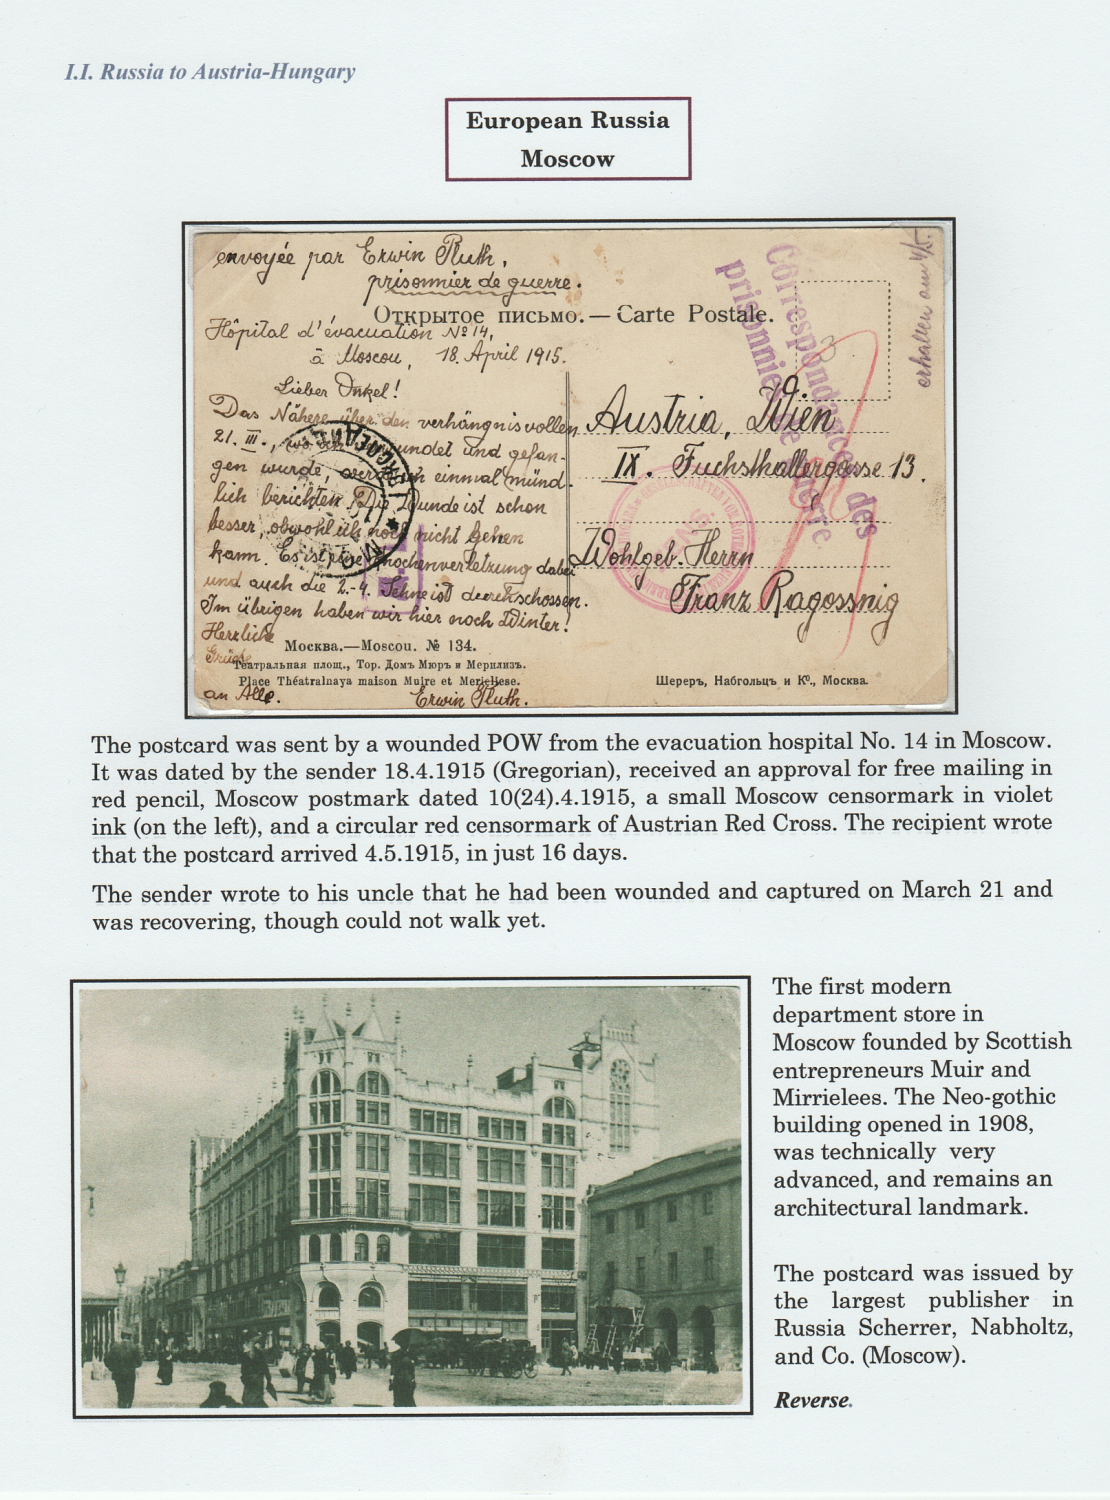 I.I. Russia to Austria-Hungary
European Russia
Moscow
envoyée par Erwin Pluth,
prisonnier de guerre.
Открытое письмо. — Carte Postale.
Hôpital d'évacuation № 14,
à Moscou, 18. April 1915.
Lieber Onkel!
Das Nähere über den verhängnisvollen
21. III., wo ich verwundet und gefan-
gen wurde, werde ich einmal münd-
lich berichten. Die Wunde ist schon
besser, obwohl ich noch nicht gehen
kann. Es ist eine Knochenverletzung dabei
und auch die 2.-4. Sehne ist durchschossen.
Im übrigen haben wir hier noch Winter!
Herzliche
Grüße
an Alle.
Erwin Pluth.
Москва.—Moscou. № 134.
Театральная площ., Тор. Домъ Мюръ и Мерилизъ.
Place Théatralnaya maison Muire et Merieliese.
Шереръ, Набгольцъ и Кº., Москва.
Correspondance des
prisonniers de guerre
erhalten am 4/5.
3
Austria, Wien
IX. Fuchsthallergasse 13.
Wohlgeb. Herrn
Franz Ragossnig
МОСКВА
The postcard was sent by a wounded POW from the evacuation hospital No. 14 in Moscow.
It was dated by the sender 18.4.1915 (Gregorian), received an approval for free mailing in
red pencil, Moscow postmark dated 10(24).4.1915, a small Moscow censormark in violet
ink (on the left), and a circular red censormark of Austrian Red Cross. The recipient wrote
that the postcard arrived 4.5.1915, in just 16 days.
The sender wrote to his uncle that he had been wounded and captured on March 21 and
was recovering, though could not walk yet.
The first modern
department store in
Moscow founded by Scottish
entrepreneurs Muir and
Mirrielees. The Neo-gothic
building opened in 1908,
was technically very
advanced, and remains an
architectural landmark.
The postcard was issued by
the largest publisher in
Russia Scherrer, Nabholtz,
and Co. (Moscow).
Reverse.